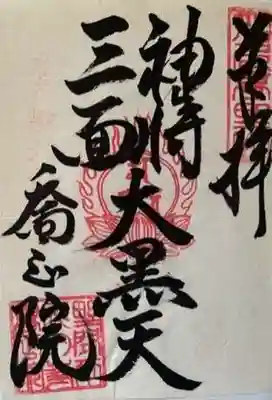 奉拝
神将大黒天
三面
喬正院